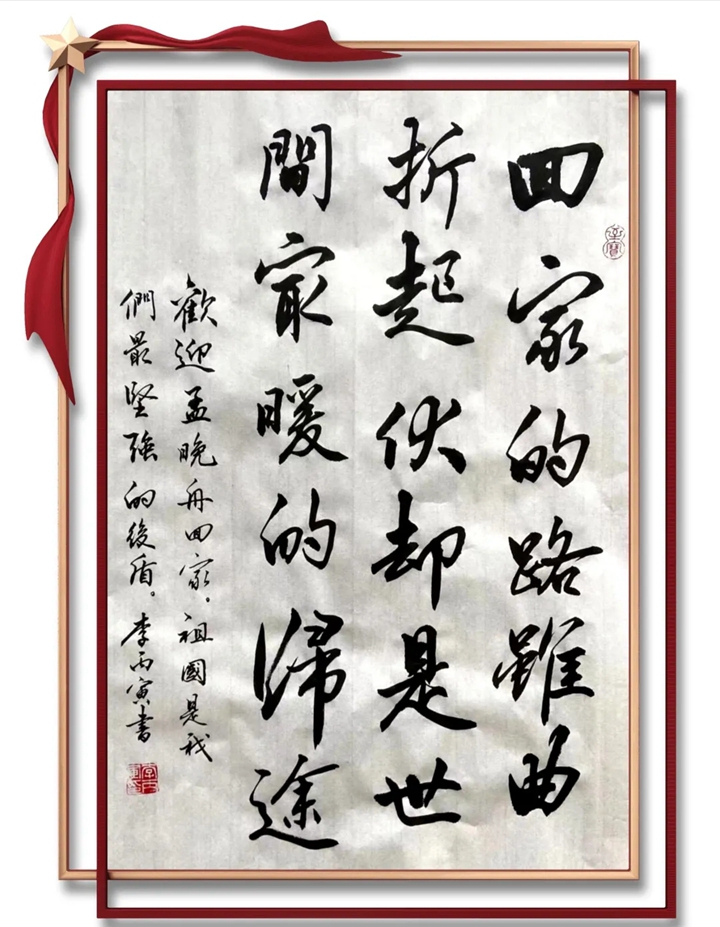 回家的路雖曲
折起伏却是世
間最暖的歸途
歡迎孟晚舟回家。祖國是我
們最堅強的後盾。李丙寅書